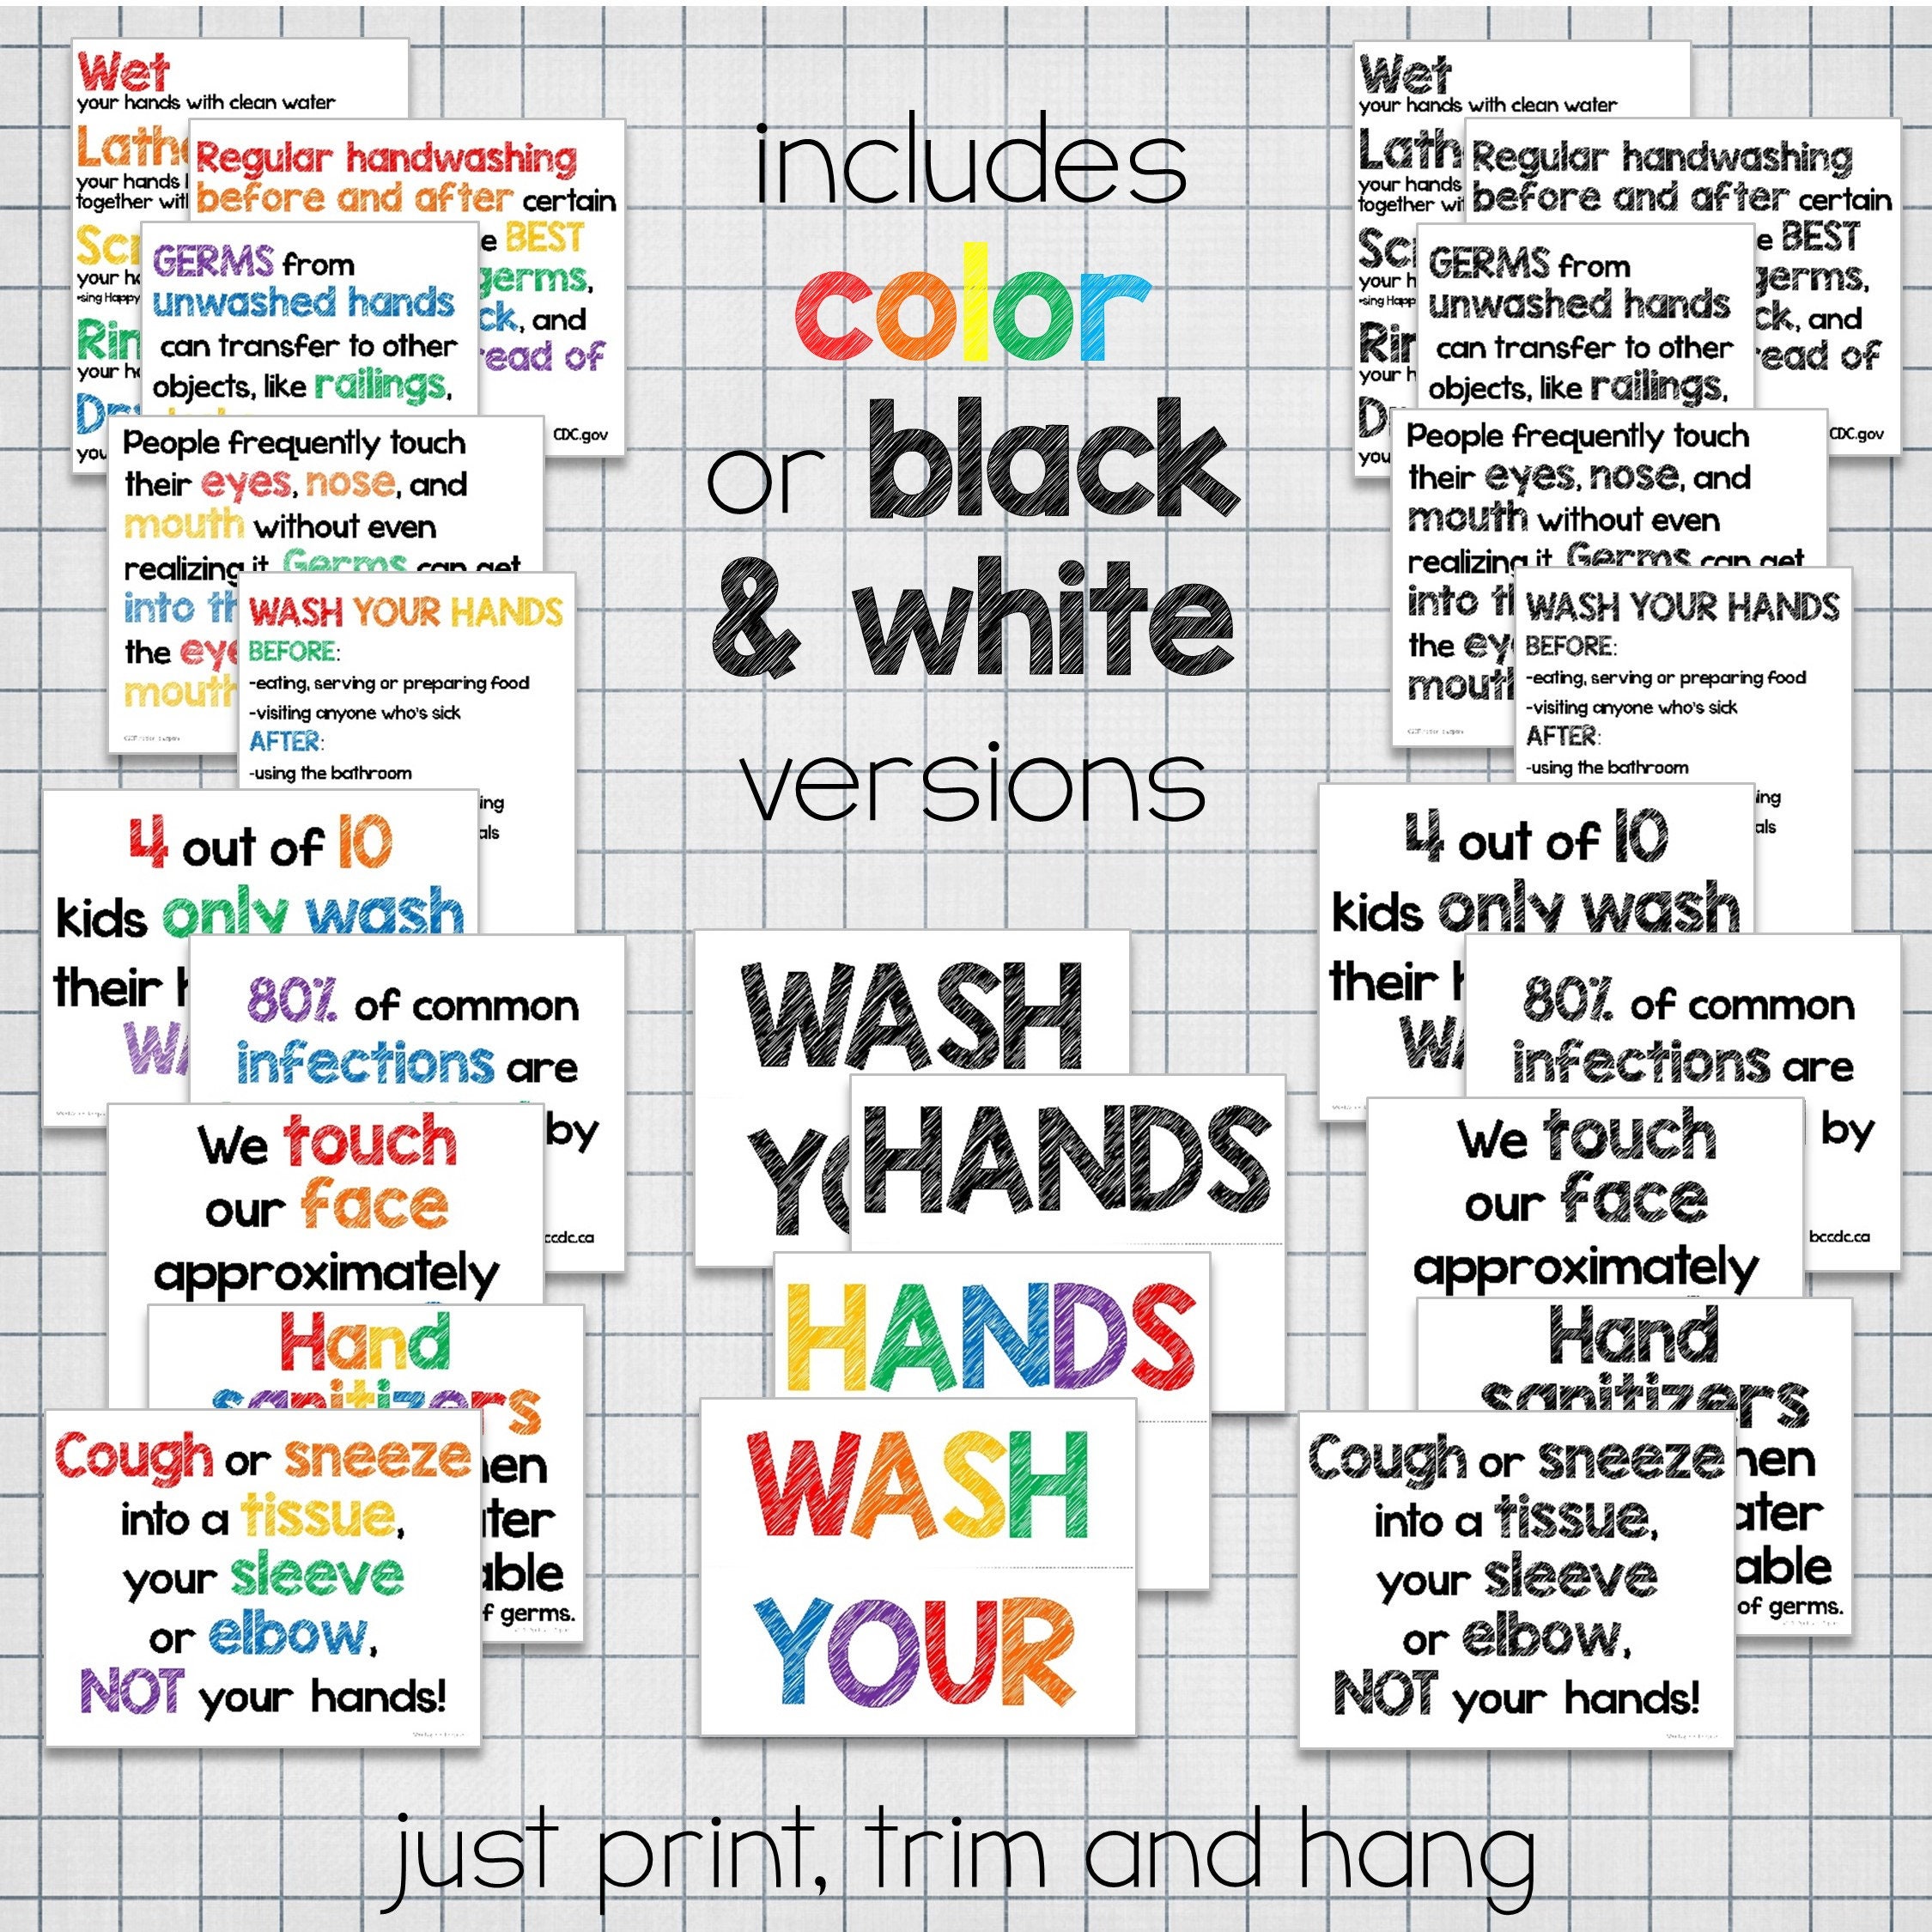 Wet
your hands with clean water
your hands
together
your
Regular handwashing
before and after certain
BEST
germs,
and
of
CDC.gov
GERMS from
unwashed hands
can transfer to other
objects, like railings,
People frequently touch
their eyes, nose, and
mouth without even
realizing it. Germs can get
into
the
mouth
WASH YOUR HANDS
BEFORE:
-eating, serving or preparing food
-visiting anyone who's sick
AFTER:
-using the bathroom
4 out of 10
kids only wash
their
80% of common
infections are
by
We touch
our face
approximately
Hand
sanitizers
of germs.
Cough or sneeze
into a tissue,
your sleeve
or elbow,
NOT your hands!
includes
color
or black
& white
versions
WASH
HANDS
HANDS
WASH
YOUR
Wet
your hands with clean water
your hands
together
your
Regular handwashing
before and after certain
BEST
germs,
and
of
CDC.gov
GERMS from
unwashed hands
can transfer to other
objects, like railings,
People frequently touch
their eyes, nose, and
mouth without even
realizing it. Germs can get
into
the
WASH YOUR HANDS
BEFORE:
-eating, serving or preparing food
-visiting anyone who's sick
AFTER:
-using the bathroom
4 out of 10
kids only wash
their
80% of common
infections are
by
bccdc.ca
We touch
our face
approximately
Hand
sanitizers
of germs.
Cough or sneeze
into a tissue,
your sleeve
or elbow,
NOT your hands!
just print, trim and hang